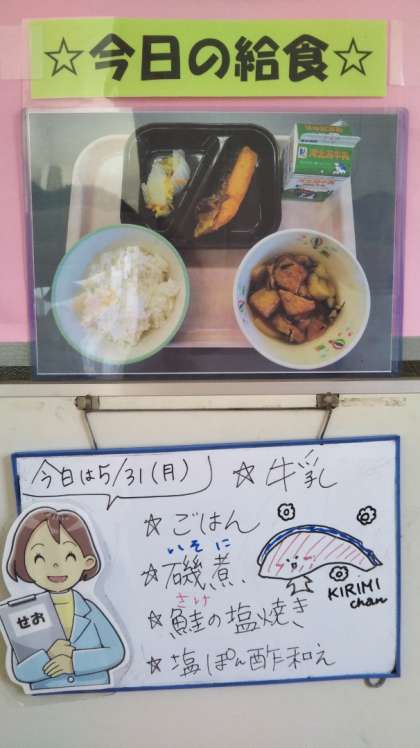 ☆今日の給食☆
今日は5/31(月)
☆牛乳
☆ごはん
いそに
☆磯煮
さけ
☆鮭の塩焼き
☆塩ぽん酢和え
KIRIMI
chan
せお